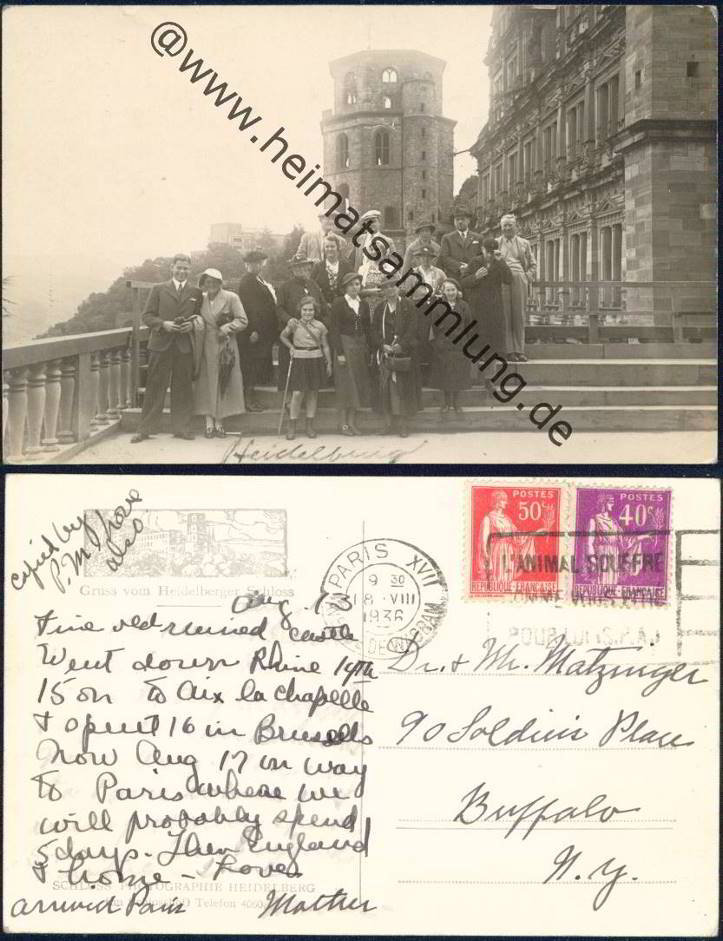 @www.heimatsammlung.de
Heidelberg
copied by
P.M. Shove
also
Gruss vom Heidelberger Schloss
Aug. 13
Fine old ruined castle
Went down Rhine 14th
15 on to Aix la chapelle
& spent 16 in Brussels
Now Aug 17 on way
to Paris where we
will probably spend
5 days. Then England
& home - Love
Mother
arrived Paris
SCHLOSS PHOTOGRAPHIE HEIDELBERG
Telefon 4060
PARIS XVII
9 30
18 · VIII
1936
POSTES
50c
RÉPUBLIQUE FRANÇAISE
POSTES
40c
RÉPUBLIQUE FRANÇAISE
L'ANIMAL SOUFFRE
COMME VOUS
POUR LUI
Dr. & Mr. Matzinger
90 Soldiers Place
Buffalo
N.Y.